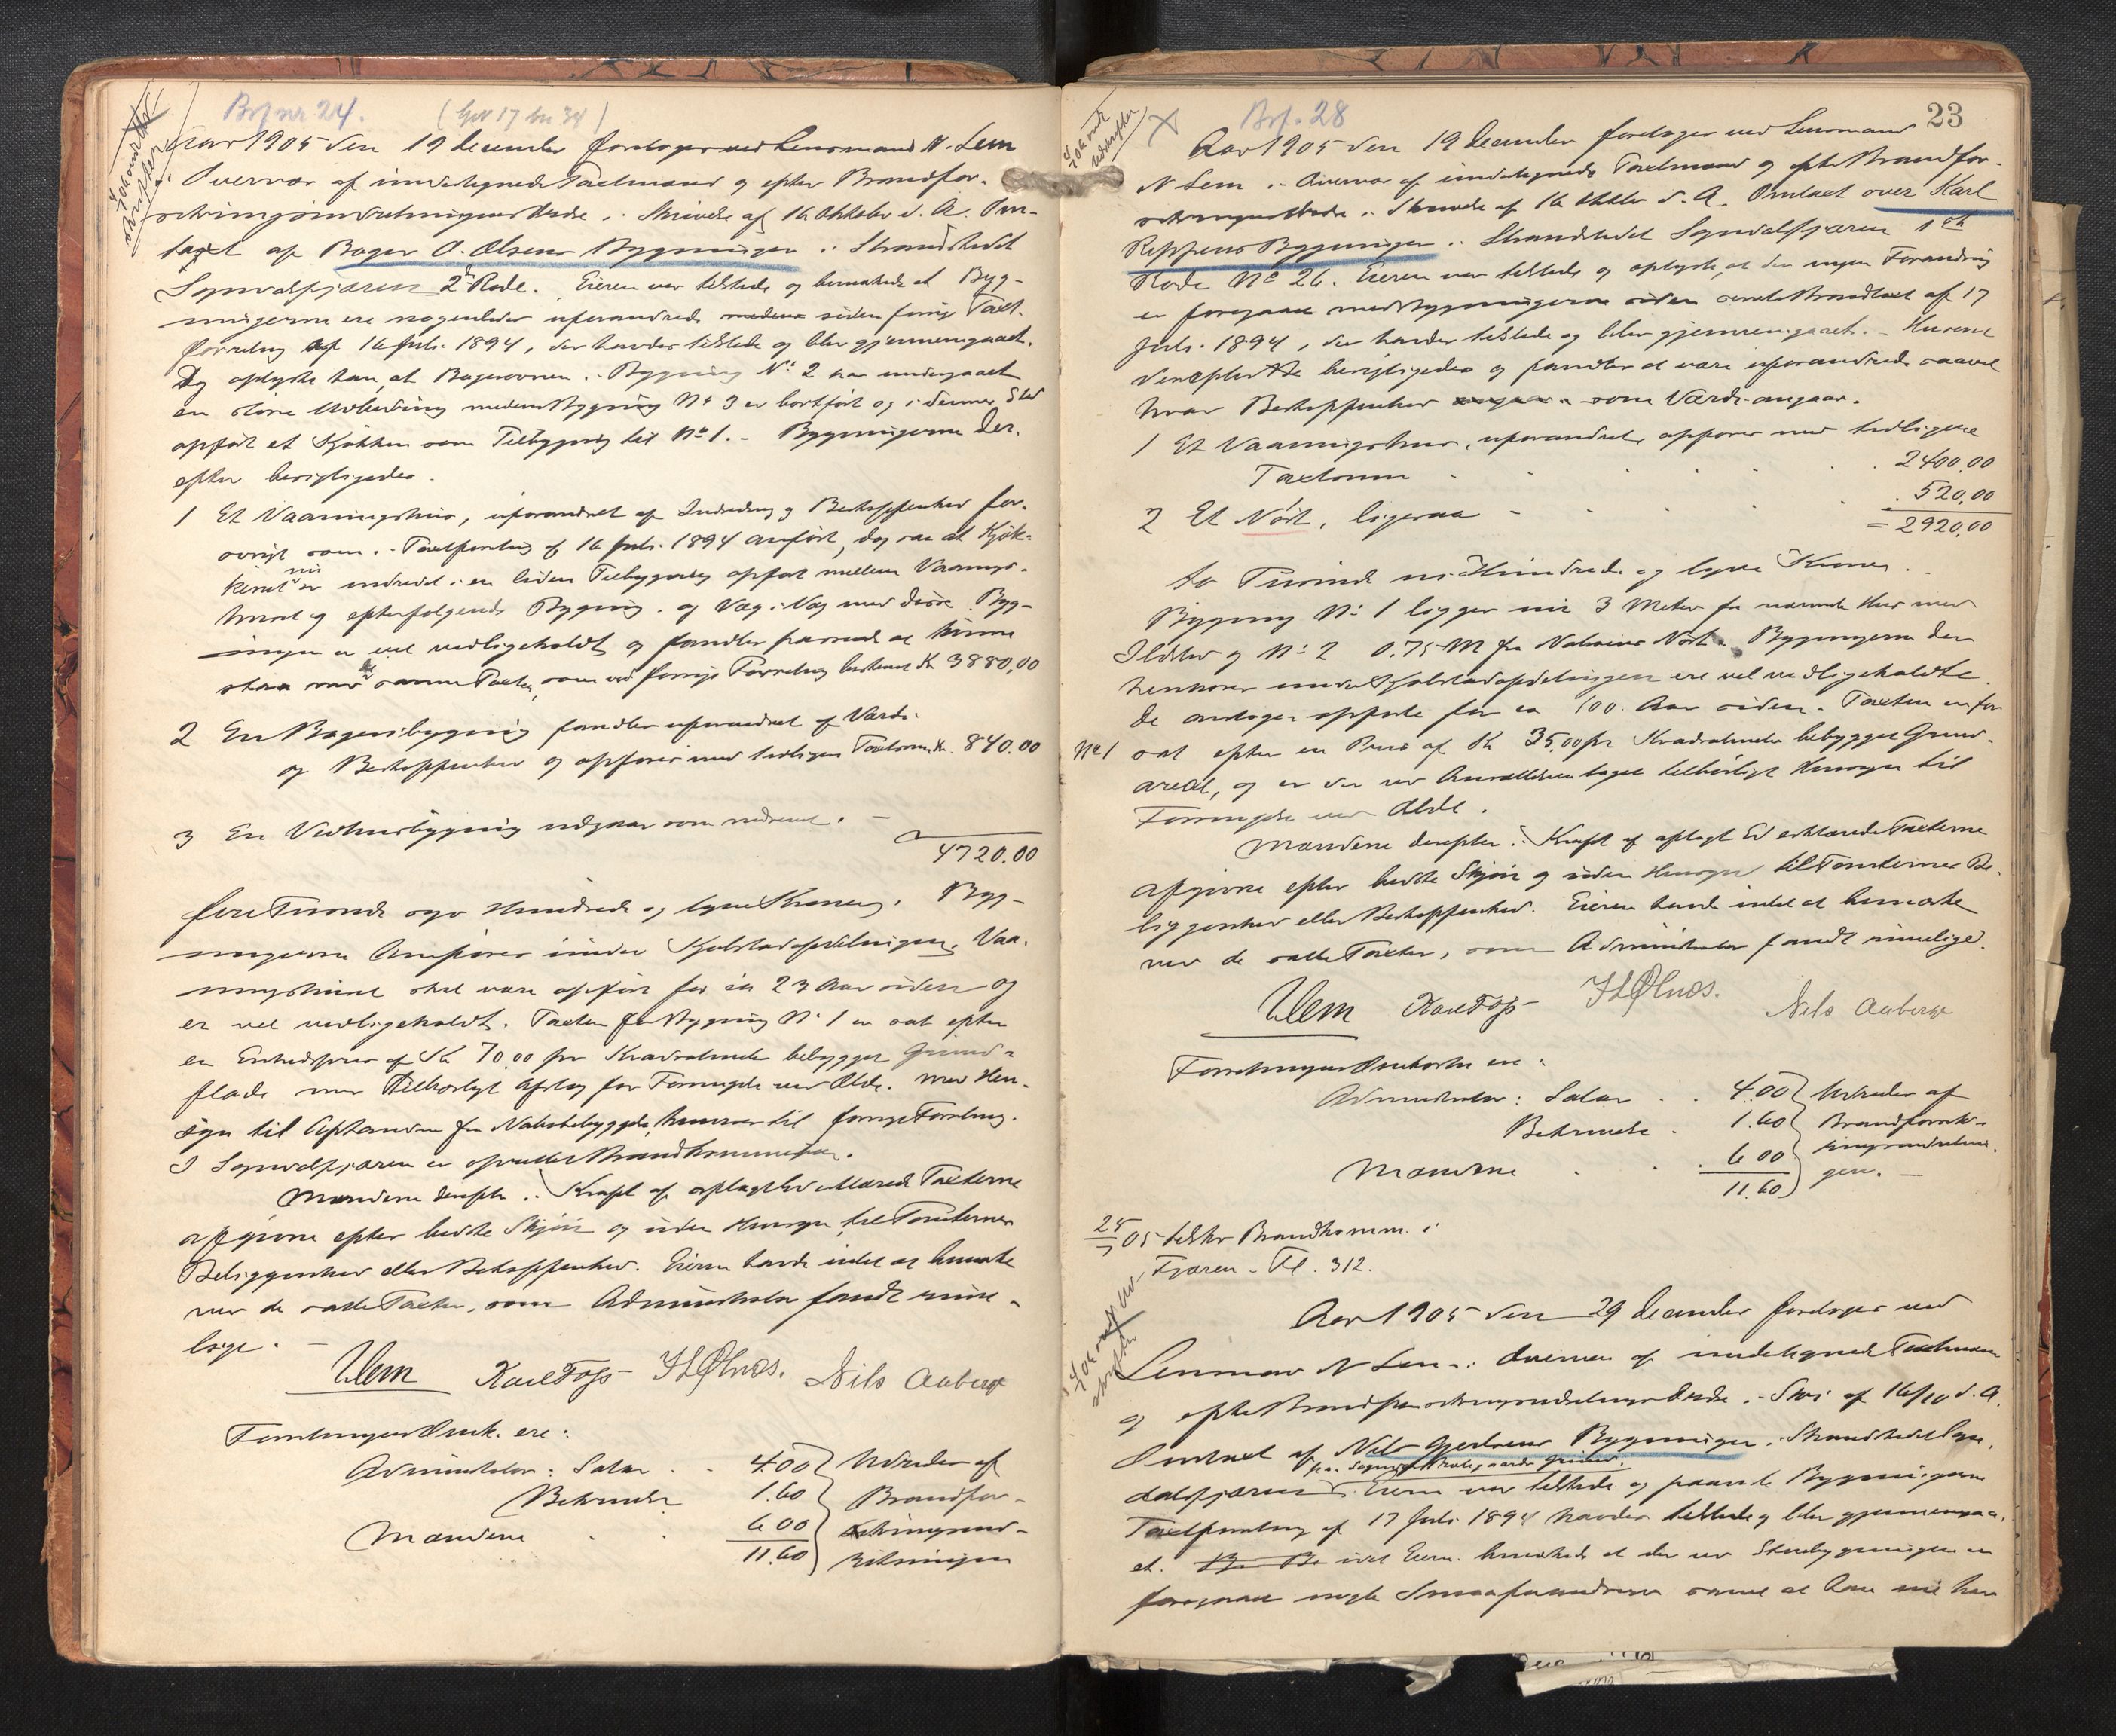 Brf nr 24. (Gnr 17 bn 34)
Aar 1905 den 19 December foretoges ved Lensmand N. Lem
i Overvær af undertegnede Taxtmænd og efter Brandfor-
sikringsindretningens Bestyr. i Skrivelse af 16 Oktober d. A. Om-
taxt af Bager O. Olsens Bygninger i Strandstedet
Sogndalsfjæren 2den Rode. Eieren var tilstede og bemærkede at Byg-
ningerne ere nogenlunde uforandrede siden forrige Taxt-
forretning af 16 Juli 1894, der havdes tilstede og blev gjennemgaaet.
Dog oplyste han, at Bagerovnen i Bygning No 2 har undergaaet
en større Udbedring medens Bygning No 3 er bortført og i dennes Sted
opført et Kjøkken som Tilbygning til No 1. - Bygningerne der-
efter besigtigedes.
1 Et Vaaningshus, uforandret af Indredning og Beskaffenhed for-
øvrigt som i Taxtforretning af 16 Juli 1894 anført, dog saa at Kjøk-
kenet nu er indredet i en liden Tilbygning opført mellem Vaanings-
huset og efterfølgende Bygning og Væg i Væg med disse. Byg-
ningen er vel vedligeholdt og fandtes passende at kunne
staa ved samme Taxt, som ved forrige Forretning bestemt Kr 3880,00
2 En Bageribygning fandtes uforandret af Værdi
og Beskaffenhed og opføres med tidligere Taxtsum Kr. 840.00
3 En Vedhusbygning udgaar som nedrevet. -
4720.00
fire Tusinde syv Hundrede og tyve Kroner. Byg-
ningerne henføres under Kjøbstadafdelingen. Vaa-
ningshuset skal være opført for ca 23 Aar siden og
er vel vedligeholdt. Taxten for Bygning No 1 er sat efter
en Enhedspris af Kr 70.00 pr Kvadratmeter bebygget Grund-
flade med tilbørligt Afslag for Forringelse ved Ælde. Med Hen-
syn til Afstanden fra Nabobebyggelse henvises til forrige Forretning.
I Sogndalsfjæren er oprettet Brandkommission.
Mændene derefter i Kraft af aflagt Ed erklærede Taxterne
afgivne efter bedste Skjøn og uden Hensyn til Tomternes
Beliggenhed eller Beskaffenhed. Eieren havde intet at bemærke
ved de satte Taxter, som Administrator fandt rime-
lige. -
NLem Karl Foss HLØlnæs. Nils Aaberge
Forretningens Omk. ere:
Administrator: Salær . . 4.00 Udredes af
Betjente 1.60 Brandfor-
Mændene . . 6 00 sikringsind-
11.60 retningen
23
Brf. 28
Aar 1905 den 19 December foretoges ved Lensmand
N Lem i Overvær af undertegnede Taxtmænd og efter Brandfor-
sikringens Bestyr. i Skrivelse af 16 Oktbr d. A. Omtaxt over Karl
Reppens Bygninger i Strandstedet Sogndalsfjæren 1ste
Rode No 26. Eieren var tilstede og oplyste, at der ingen Forandring
er foregaaet med Bygningerne siden sidste Brandtaxt af 17
Juli 1894, der havdes tilstede og blev gjennemgaaet. - Husene
derefter besigtigedes og fandtes at være uforandrede saavel
hvad Beskaffenhed som Værdi angaar.
1 Et Vaaningshus, uforandret, opføres med tidligere
Taxtsum . . . . 2400.00
2 Et Nøst, ligesaa - . . . . 520,00
= 2920,00
to Tusinde ni Hundrede og tyve Kroner.
Bygning No 1 ligger nu 3 Meter fra nærmeste Hus med
Ildsted og No 2 0.75 M fra Naboens Nøst. Bygningerne der
henføres under Kjøbstadafdelingen ere vel vedligeholdte.
De antages opførte for ca 100 Aar siden. Taxten er for
No 1 sat efter en Pris af Kr 35,00 pr Kvadratmeter bebygget Grund-
areal, og er der ved Ansættelsen taget tilbørligt Hensyn til
Forringelse ved Ælde.
Mændene derefter i Kraft af aflagt Ed erklærede Taxterne
afgivne efter bedste Skjøn og uden Hensyn til Tomternes Be-
liggenhed eller Beskaffenhed. Eieren havde intet at bemærke
ved de satte Taxter, som Administrator fandt rimelige.
NLem Karl Foss HLØlnæs. Nils Aaberge
Forretningens Omkostn. ere:
Administrator: Salær . . 4.00 Udredes af
Betjente . 1.60 Brandforsik-
Mændene . . 6 00 ringsindretnin-
11.60 gen. -
05 tilskr Brandkomm. i
Fjæren. Fl. 312.
Aar 1905 den 29 December foretoges ved
Lensmand N Lem i Overvær af undertegnede Taxtmænd
og efter Brandforsikringsindretningens Bestyr. i Skri af 16/10 d. A.
Omtaxt af Nils Gjerloens Bygninger i Strandstedet Sogn-
dalsfjæren paa Sogndals Prestegaards Grund. Eieren var tilstede og paaviste Bygningerne
Taxtforretning af 17 Juli 1894 havdes tilstede og blev gjennemgaa-
et. Eieren bemærkede at der ved Storebygningen er
foregaaet nogle Smaaforandringer samt at han nu har